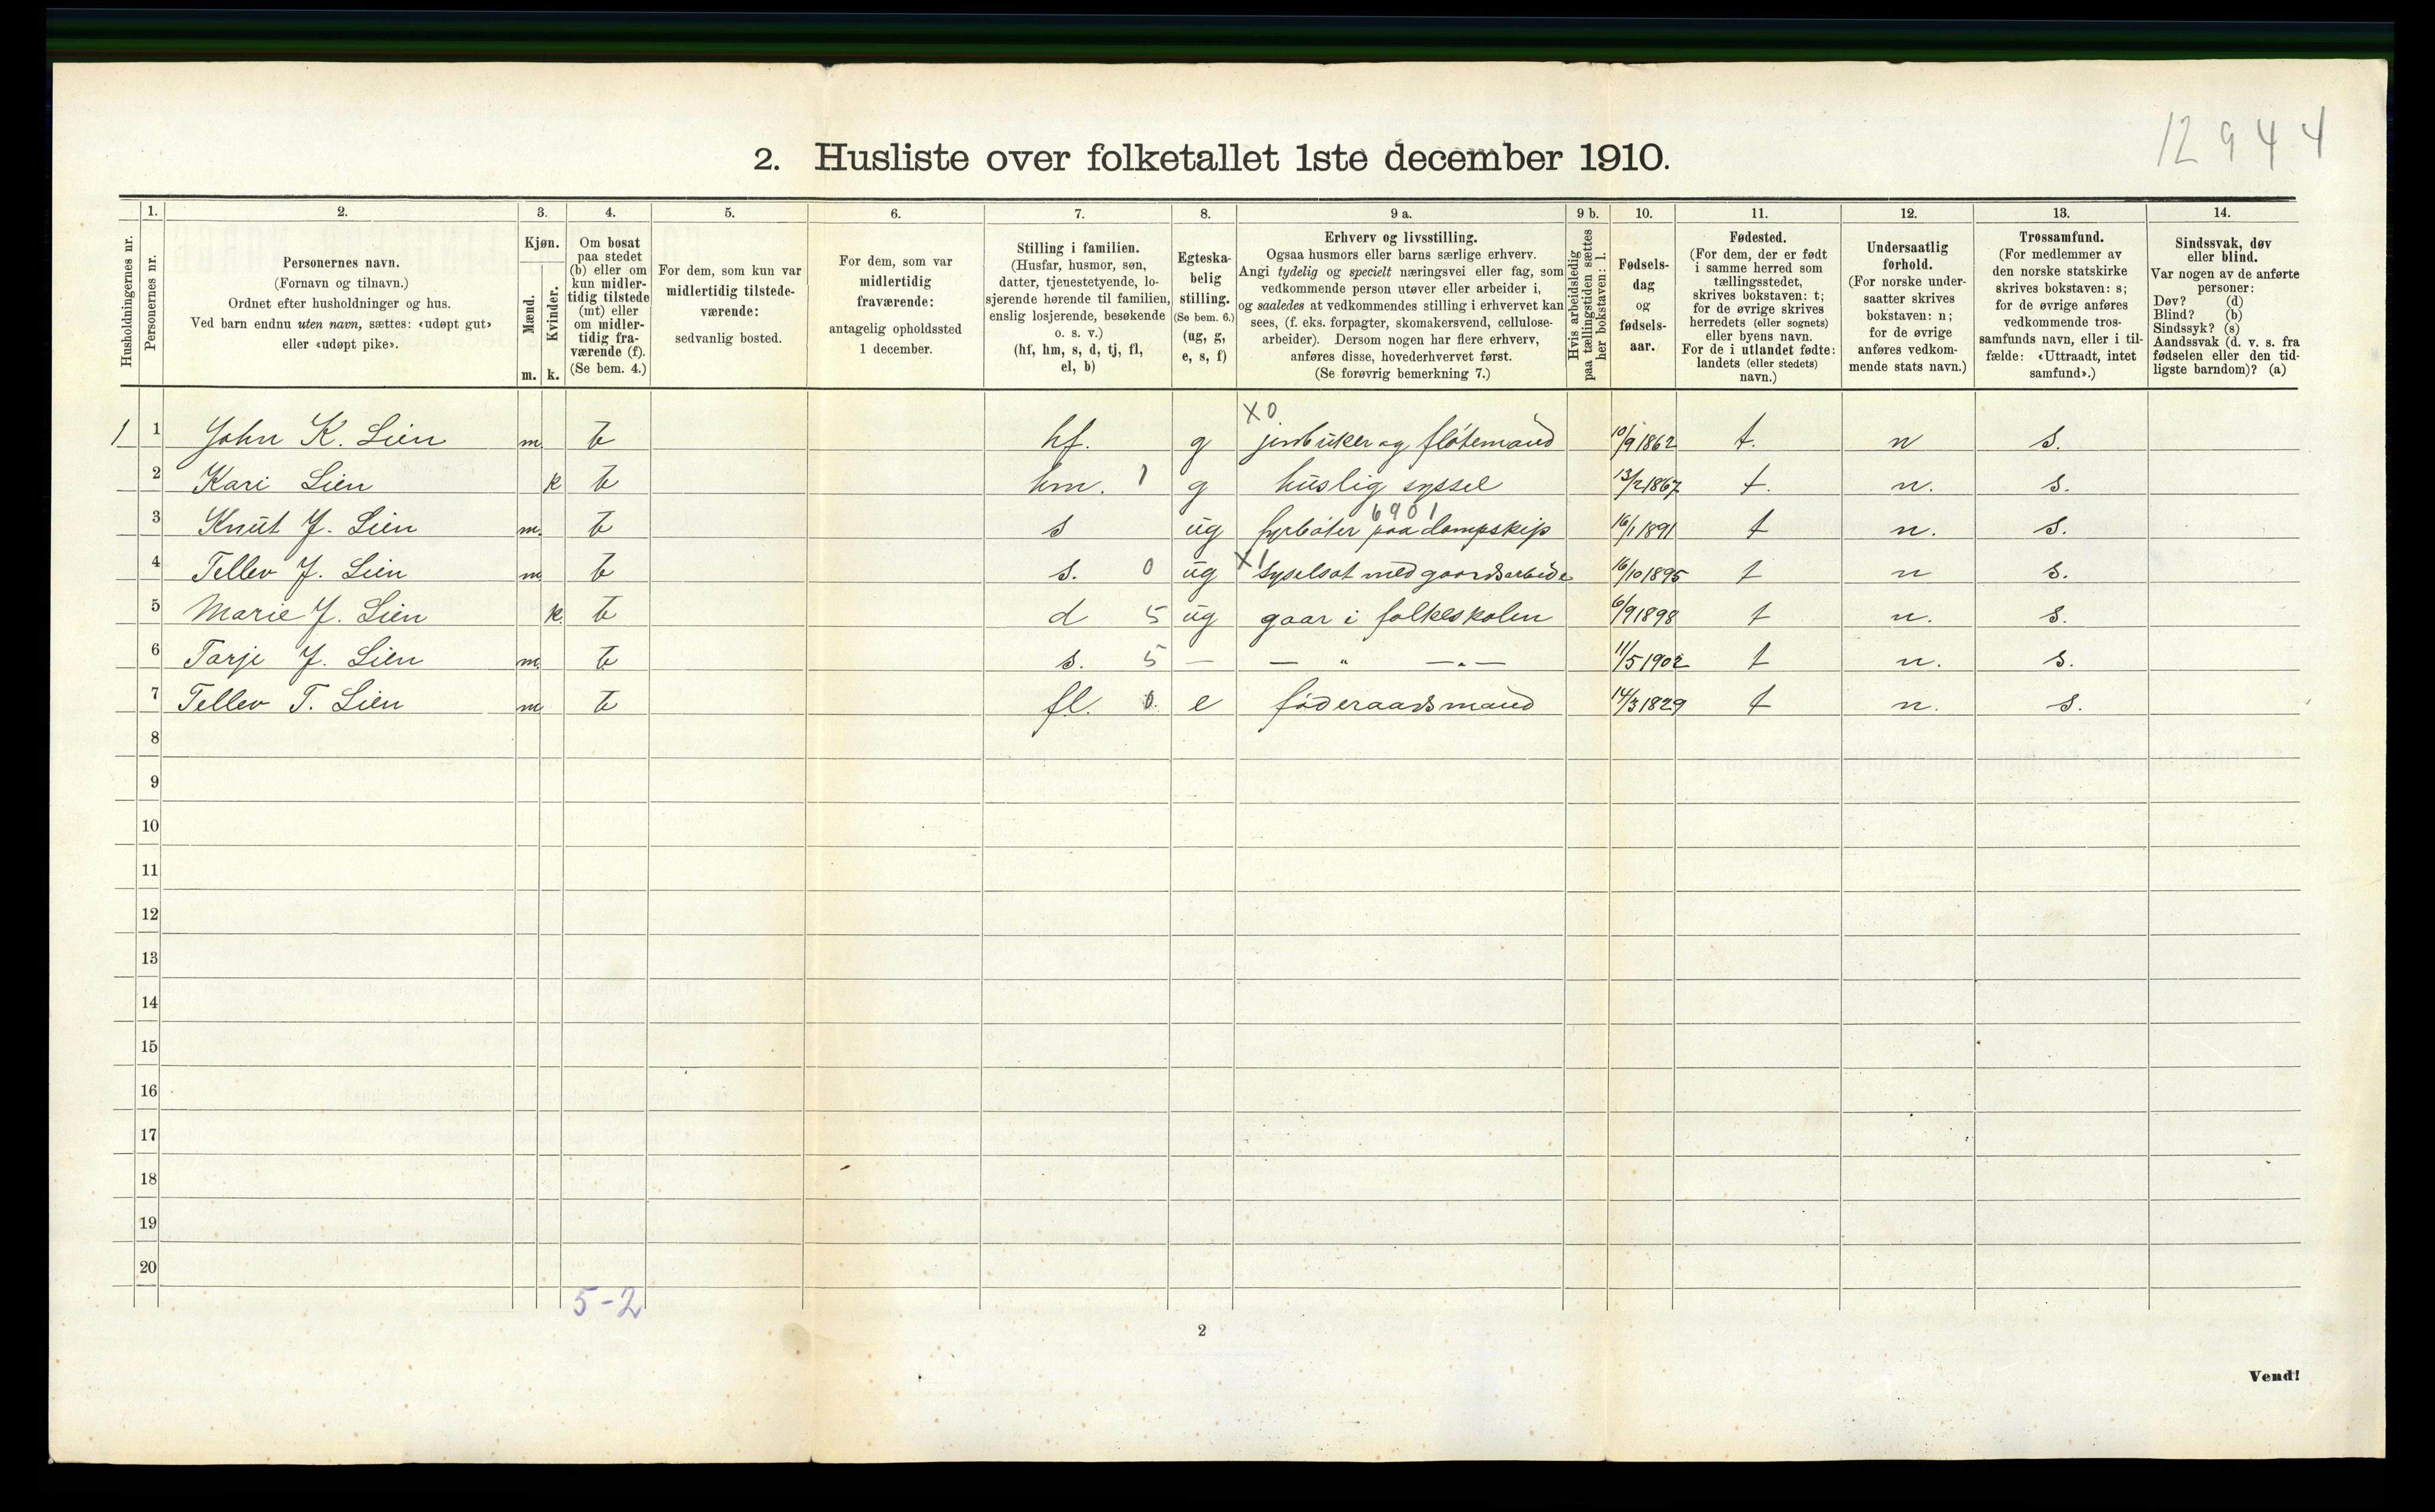 12 9 4 4
2. Husliste over folketallet 1ste december 1910.
1. 2. 3. 4. 5. 6. 7. 8. 9 a. 9 b. 10. 11. 12. 13. 14.
Husholdningernes nr.
Personernes nr.
Personernes navn.
(Fornavn og tilnavn.)
Ordnet efter husholdninger og hus.
Ved barn endnu uten navn, sættes: «udøpt gut»
eller «udøpt pike».
Kjøn.
Mænd.
Kvinder.
m. k.
Om bosat
paa stedet
(b) eller om
kun midler-
tidig tilstede
(mt) eller
om midler-
tidig fra-
værende (f).
(Se bem. 4.)
For dem, som kun var
midlertidig tilstede-
værende:
sedvanlig bosted.
For dem, som var
midlertidig
fraværende:
antagelig opholdssted
1 december.
Stilling i familien.
(Husfar, husmor, søn,
datter, tjenestetyende, lo-
sjerende hørende til familien,
enslig losjerende, besøkende
o. s. v.)
(hf, hm, s, d, tj, fl,
el, b)
Egteska-
belig
stilling.
(Se bem. 6.)
(ug, g,
e, s, f)
Erhverv og livsstilling.
Ogsaa husmors eller barns særlige erhverv.
Angi tydelig og specielt næringsvei eller fag, som
vedkommende person utøver eller arbeider i,
og saaledes at vedkommendes stilling i erhvervet kan
sees, (f. eks. forpagter, skomakersvend, cellulose-
arbeider). Dersom nogen har flere erhverv,
anføres disse, hovederhvervet først.
(Se forøvrig bemerkning 7.)
Hvis arbeidsledig
paa tællingstiden sættes
her bokstaven: l.
Fødsels-
dag
og
fødsels-
aar.
Fødested.
(For dem, der er født
i samme herred som
tællingsstedet,
skrives bokstaven: t;
for de øvrige skrives
herredets (eller sognets)
eller byens navn.
For de i utlandet fødte:
landets (eller stedets)
navn.)
Undersaatlig
forhold.
(For norske under-
saatter skrives
bokstaven: n;
for de øvrige
anføres vedkom-
mende stats navn.)
Trossamfund.
(For medlemmer av
den norske statskirke
skrives bokstaven: s;
for de øvrige anføres
vedkommende tros-
samfunds navn, eller i til-
fælde: «Uttraadt, intet
samfund».)
Sindssvak, døv
eller blind.
Var nogen av de anførte
personer:
Døv? (d)
Blind? (b)
Sindssyk? (s)
Aandssvak (d. v. s. fra
fødselen eller den tid-
ligste barndom)? (a)
X 0
1 1 John K. Lien m. b hf. g og fløtemand 10/9 1862 t. n s.
2 Kari Lien k b hm. 1 g huslig syssel 13/2 1867 t. n. s.
6901
3 Knut J. Lien m. b s ug fyrbøter paa dampskip 16/1 1891 t n. s.
X 1
4 Tellev J. Lien m b s. 0 ug syselsat med gaardsarbeide 16/10 1895 t n s.
5 Marie J. Lien k. b d 5 ug gaar i folkeskolen 6/9 1898 t n. s.
6 Tarje J. Lien m. b s. 5 — — " — " — 11/5 1902 t n. s.
7 Tellev T. Lien m b fl. 0. e føderaadsmand 14/3 1829 t n. s.
8
9
10
11
12
13
14
15
16
17
18
19
20
5-2
2
Vend!